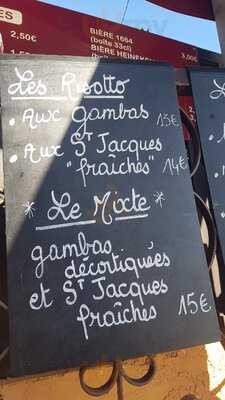 2,50€
BIÈRE 1664
(boîte 33cl)
BIÈRE HEINEKEN
3,00€
Les Risotto
• Aux Gambas 13€
• Aux St Jacques
"fraîches" 14€
* Le Mixte *
gambas
décortiquées
et St Jacques
fraîches 15€